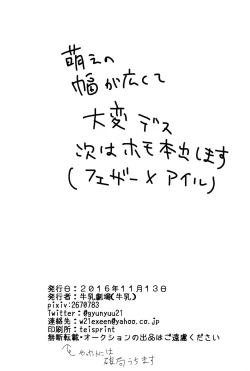 萌えの
幅が広くて
大変デス
次はホモ本出します
(フェザー×アイル)
発行日：２０１６年１１月１３日
発行者：牛乳劇場(牛乳)
pixiv:2670783
Twitter：@gyunyuu21
連絡先：w21exeen@yahoo.co.jp
印刷所：teisprint
無断転載・オークションの出品はご遠慮ください
うちます